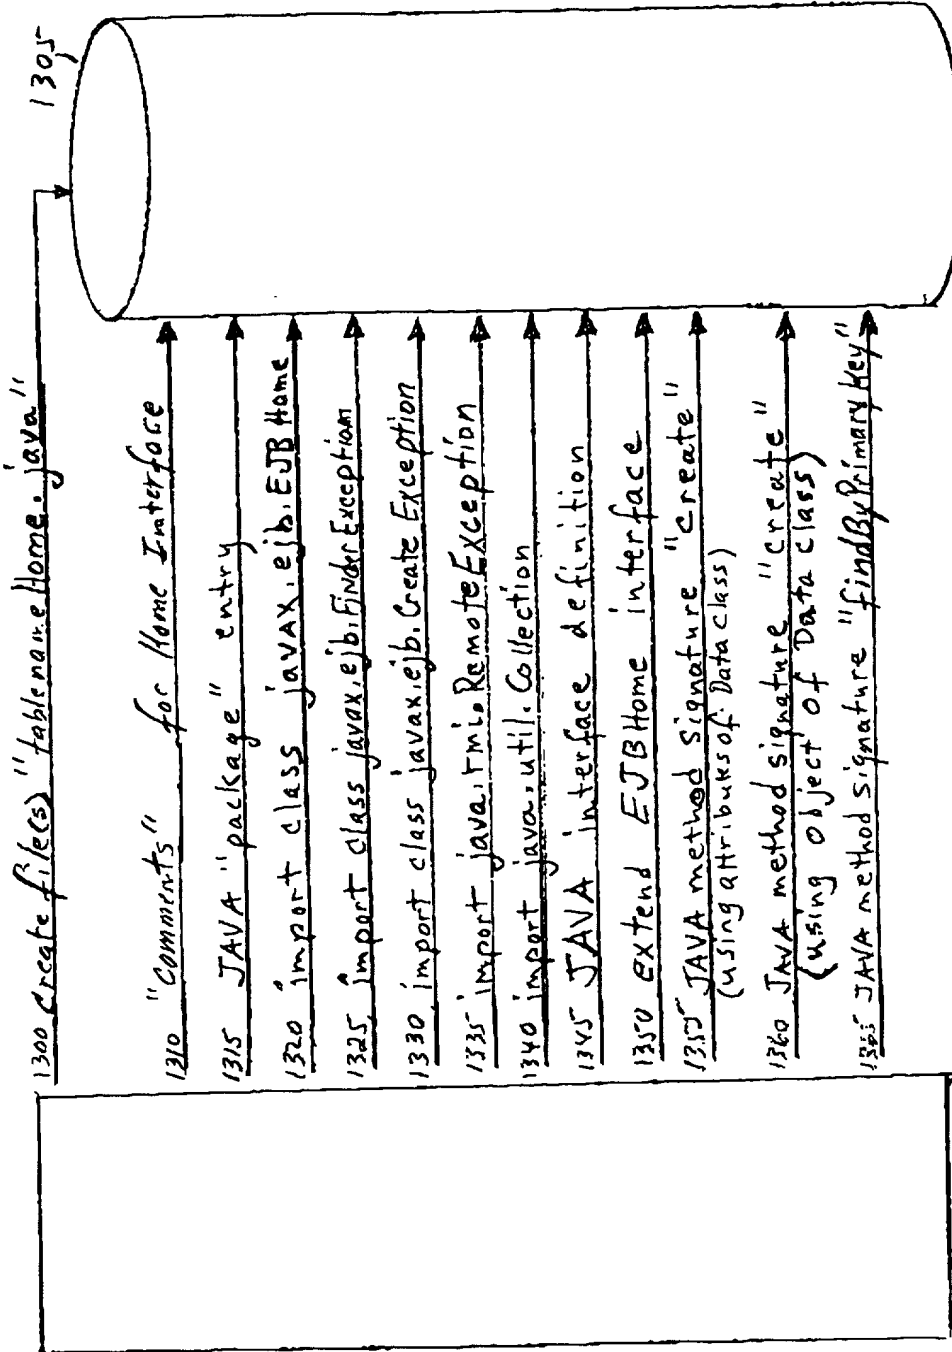 1305
1300 create file(s) "tablenameHome.java"
1310 "comments" for Home Interface
1315 JAVA "package" entry
1320 import class javax.ejb.EJBHome
1325 import class javax.ejb.FinderException
1330 import class javax.ejb.CreateException
1335 import java.rmi.RemoteException
1340 import java.util.Collection
1345 JAVA interface definition
1350 extend EJBHome interface
1355 JAVA method signature "create"
(using attributes of Data class)
1360 JAVA method signature "create"
(using object of Data class)
1365 JAVA method signature "findByPrimaryKey"